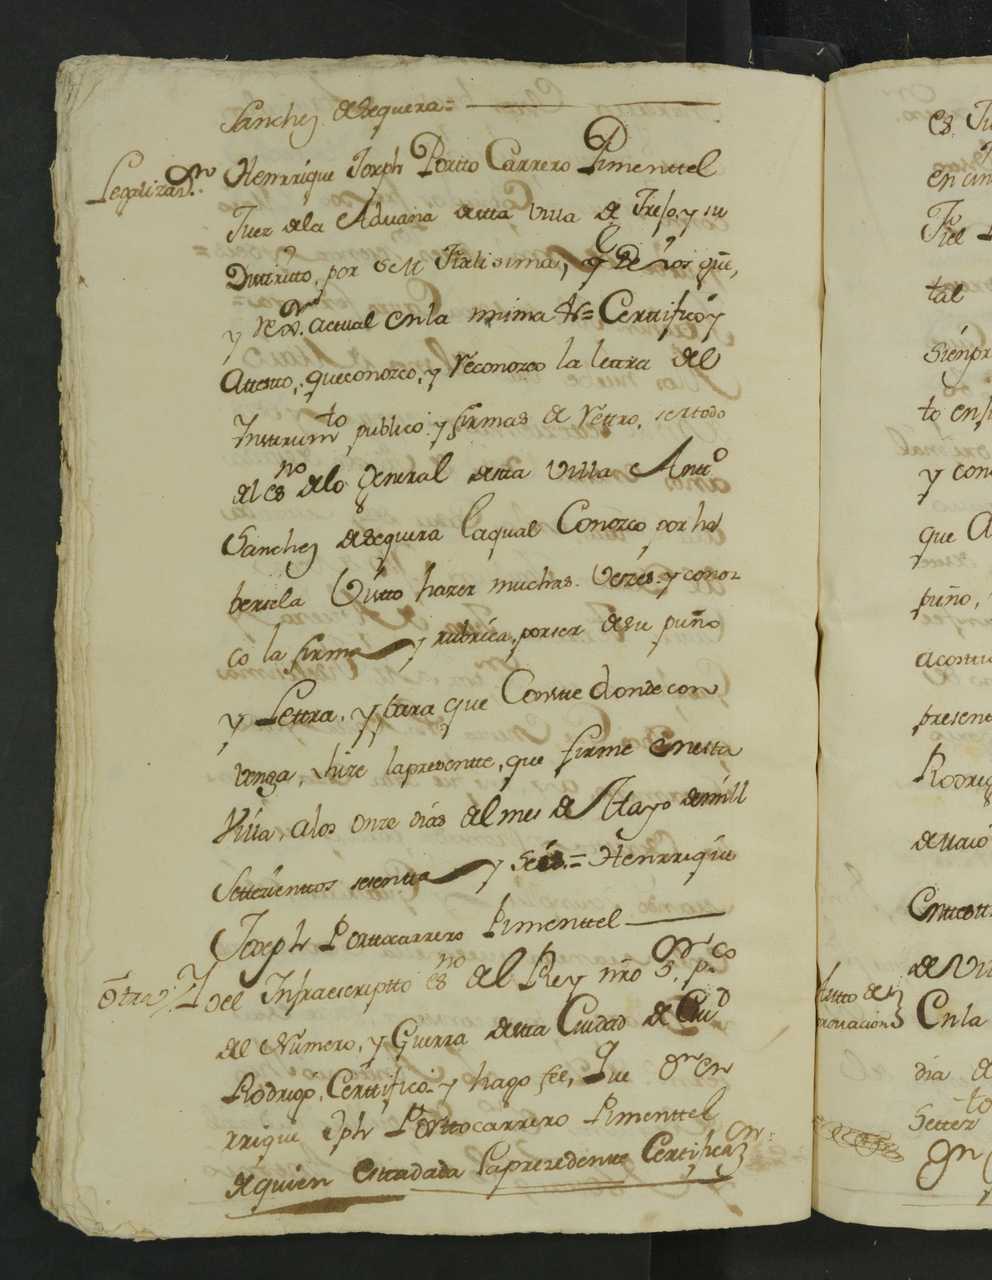 Sanchez de Sequera =
Legalizazn. Henrrique Joseph Portto Carrero Pimenttel
Juez dela Aduana desta Villa de Frejo, y su
Disttritto, por S M Fidelisima, y De los que,
y sen. actual en la misma &a = Certtifico y
Attesto, que conozco, y Reconozco la lettra del
Instrumto publico y firmas de Rettro, ser todo
del esno delo General desta Villa Anto
Sanchez de Sequera la qual Conozco por ha
bersela Vistto hazer muchas Vezes, y conoz
co la firma y rubrica, por ser de su puño
y Lettra, y para que Constte donde con
venga, hize la presentte, que firme en esta
Villa, a los onze dias del mes de Mayo de mill
Settezienttos sesentta y Seis = Henrrique
Joseph Porttocarrero Pimenttel
Ottra Yo el Infraescriptto esno del Rey nro Sor, pco
del Número, y Guerra desta Ciudad de Ciud
Rodrigo, Certtifico y hago fee, Que Dn en
rrique Jph Porttocarrero Pimenttel
de quien esta dada la prezedentte Certificazn
es Ju
en cin
Fiel
tal
Siénpr
to en
y con
que
puño,
acostu
presen
Rodrig
de Maio
de Vi
Autto de
provacion En la
dia de
Settez
Dn